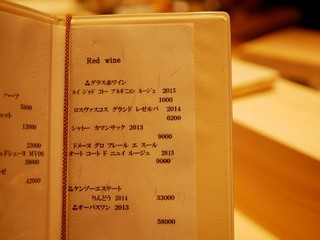 Red wine
グラス赤ワイン
ルイ ジャド コトー ブルギニヨン ルージュ 2015
1000
ロスヴァスコス グランド レゼルバ 2014
6200
シャトー カマンサック 2013
9000
ドメーヌ グロ フレール エ スール
オート コート ド ニュイ ルージュ 2015
9000
ケンゾーエステート
りんどう 2014 33000
オーパスワン 2013
58000
ハーフ
5800
12000
23000
42000